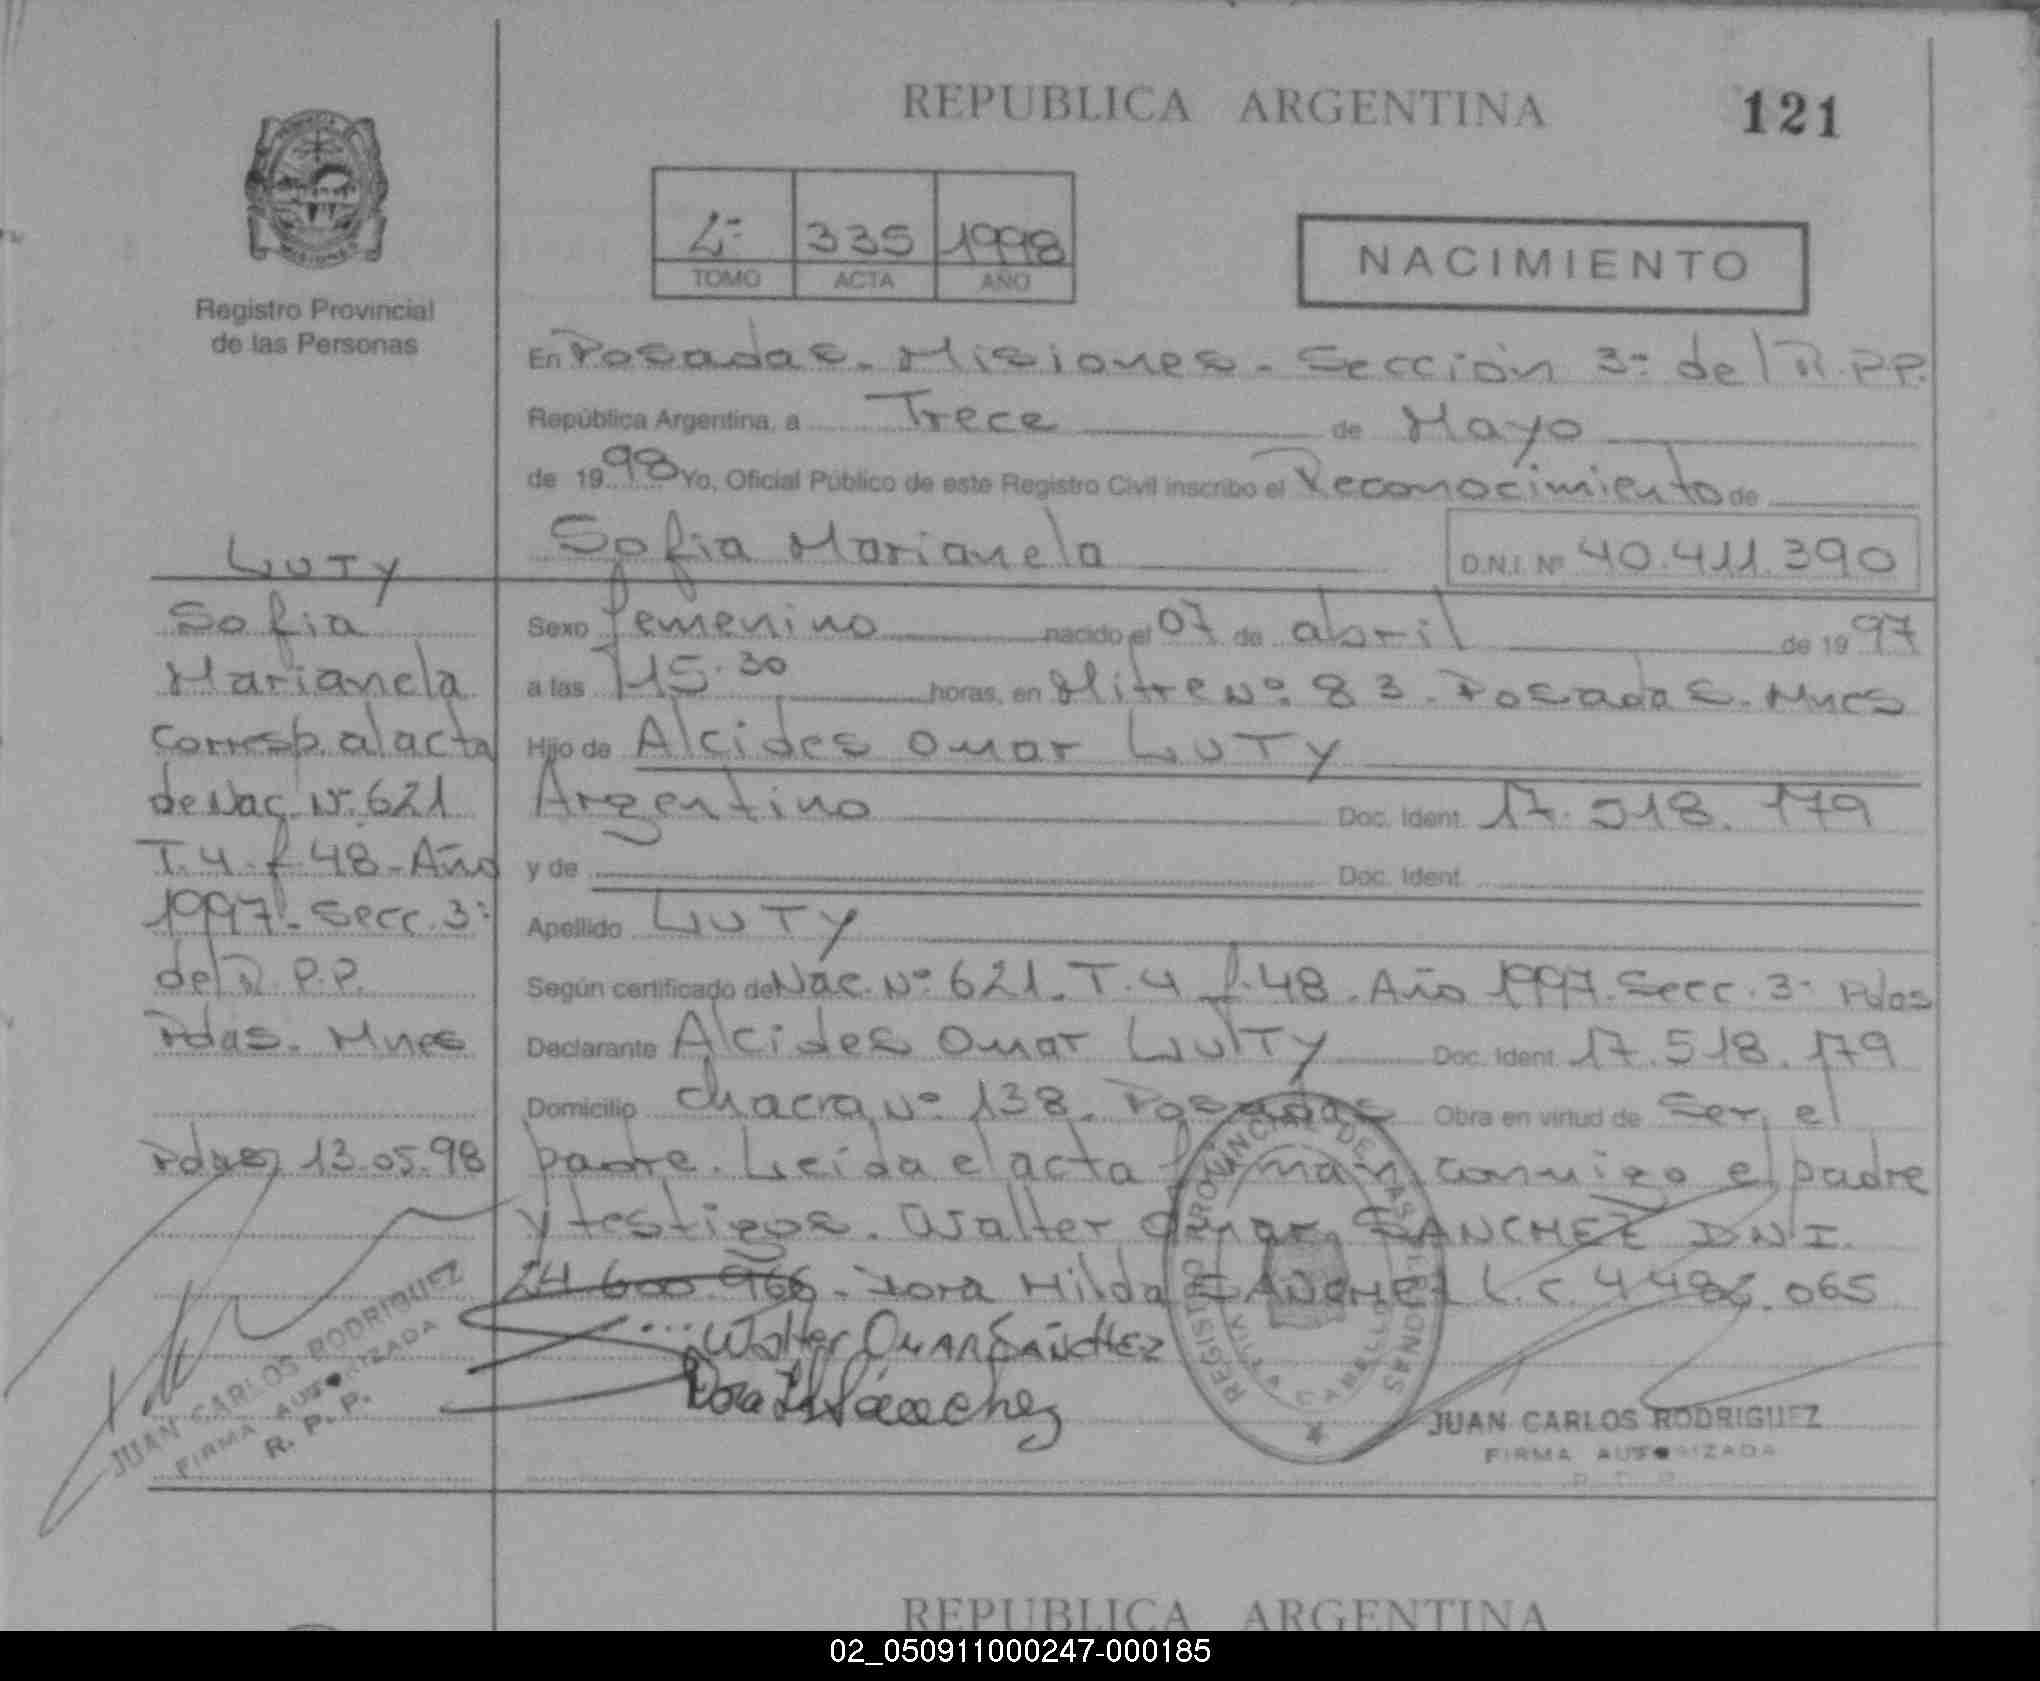 REPUBLICA ARGENTINA
121
2º 335 1998
TOMO ACTA AÑO
NACIMIENTO
Registro Provincial
de las Personas
En Posadas. Misiones. Sección 3º del R.P.P.
República Argentina, a Trece de Mayo
de 1998 Yo, Oficial Público de este Registro Civil inscribo el Reconocimiento de
Sofia Marianela D.N.I. Nº 40.411.390
Sexo femenino nacido el 07 de abril de 1997
a las 15.30 horas, en Mitre Nº 83. Posadas. Mnes
Hijo de Alcides Omar LUTY
Argentino Doc. Ident. 17.518.179
y de Doc. Ident.
Apellido LUTY
Según certificado de Nac. Nº 621. T.4 f.48. Año 1997. Secc. 3º Pdas
Declarante Alcides Omar LUTY Doc. Ident. 17.518.179
Domicilio Chacra Nº 138. Posadas Obra en virtud de Ser el
padre. Leida el acta firman conmigo el padre
y testigos. Walter Omar SANCHEZ DNI.
24.600.966. Dora Hilda SANCHEZ L.C. 4.486.065
Walter OMAR SANCHEZ
Dora H Sanchez
LUTY
Sofia
Marianela
Corresp. al acta
de Nac. Nº 621
T.4. f.48. Año
1997. Secc. 3º
del R.P.P.
Pdas. Mnes
Pdas 13.05.98
JUAN CARLOS RODRIGUEZ
FIRMA AUTORIZADA
R. P. P.
REGISTRO PROVINCIAL DE LAS PERSONAS
VILLA CABELLO
JUAN CARLOS RODRIGUEZ
FIRMA AUTORIZADA
REPUBLICA ARGENTINA
02_050911000247-000185